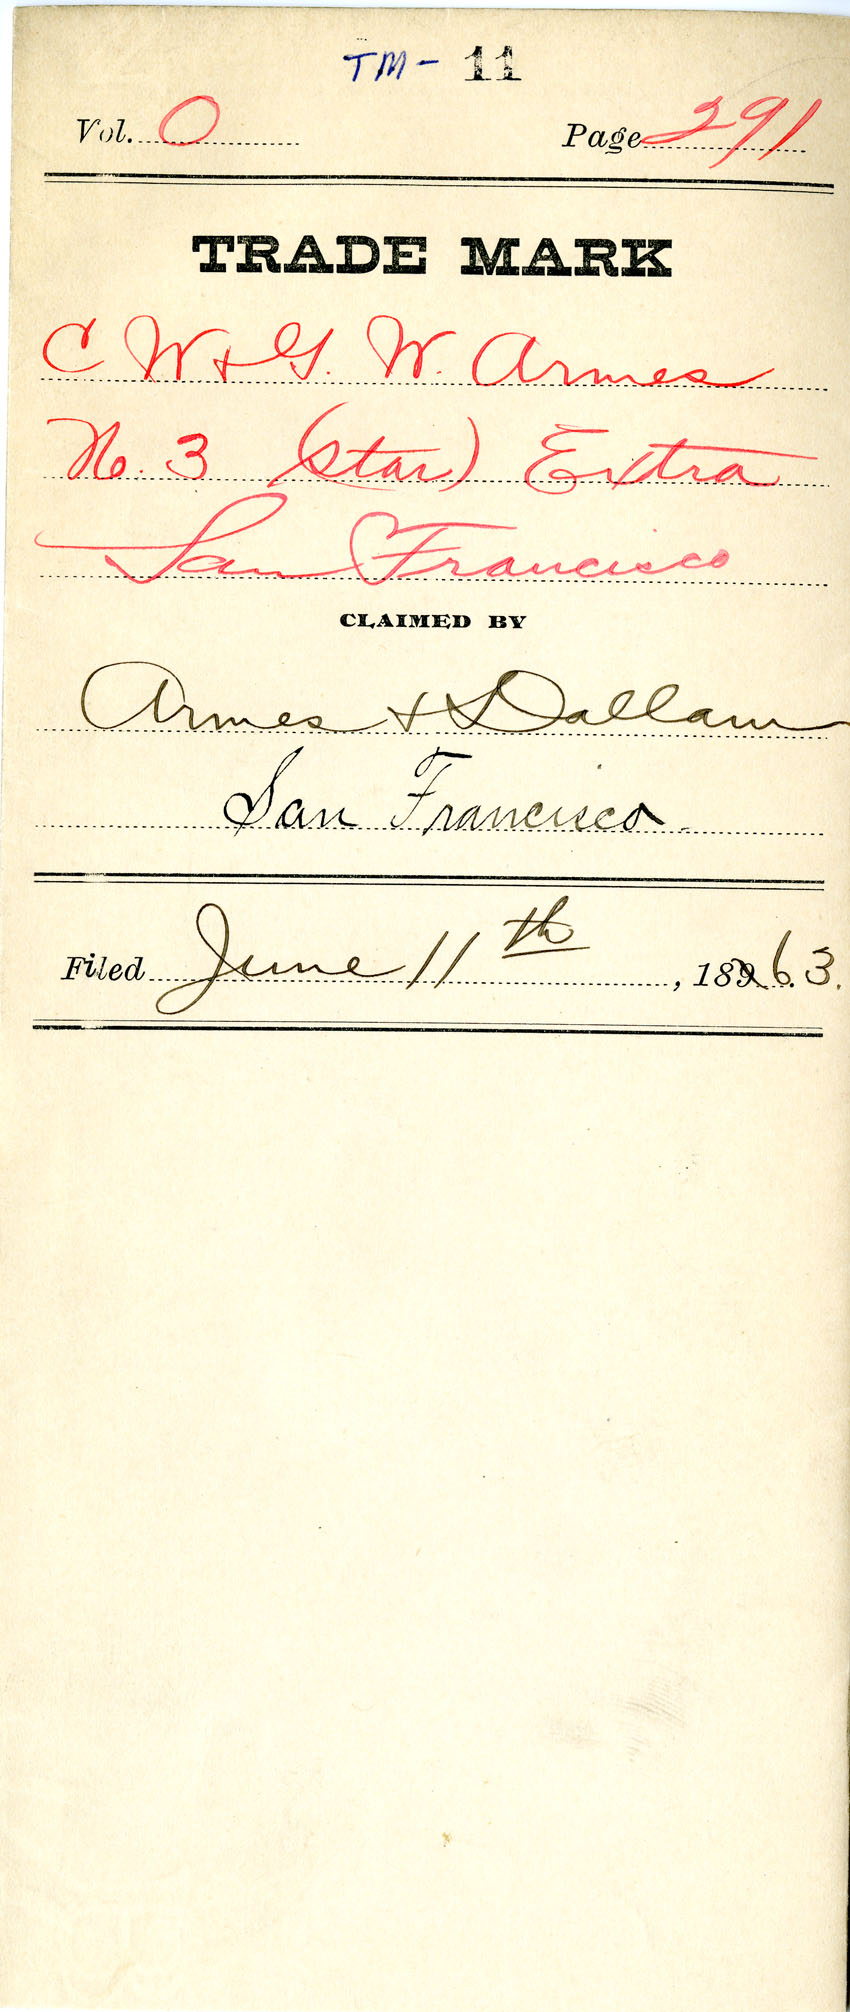 TM- 11
Vol. 0 Page 291
TRADE MARK
C W & G. W. Armes
No. 3 (star) Extra
San Francisco
CLAIMED BY
Armes & Dallam
San Francisco
Filed June 11th, 1863.